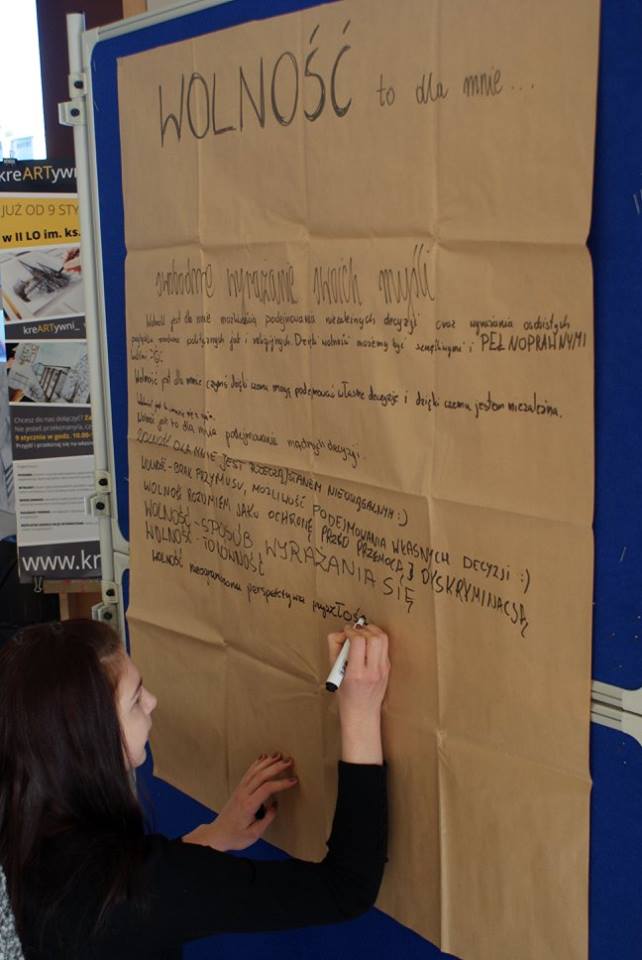 WOLNOŚĆ to dla mnie...
swobodne wyrażanie swoich myśli
Wolność jest dla mnie możliwością podejmowania niezależnych decyzji oraz wyrażania osobistych
poglądów zarówno politycznych jak i religijnych. Dzięki wolności możemy być szczęśliwymi i PEŁNOPRAWNYMI
Wolność jest dla mnie czymś dzięki czemu mogę podejmować własne decyzje i dzięki czemu jestem niezależna.
Wolność jest to dla mnie podejmowanie mądrych decyzji.
WOLNOŚĆ DLA MNIE JEST RZECZĄ, STANEM NIEOSIĄGALNYM :)
WOLNOŚĆ - BRAK PRZYMUSU, MOŻLIWOŚĆ PODEJMOWANIA WŁASNYCH DECYZJI :)
WOLNOŚĆ ROZUMIEM JAKO OCHRONĘ PRZED PRZEMOCĄ I DYSKRYMINACJĄ
WOLNOŚĆ - SPOSÓB WYRAŻANIA SIĘ
WOLNOŚĆ -
wolność nieograniczona perspektywa przyszłoś
kreARTywn
JUŻ OD 9 STY
w II LO im. ks.
kreARTywni_
Chcesz do nas dołączyć?
9 stycznia w godz. 10.00-
www.kr